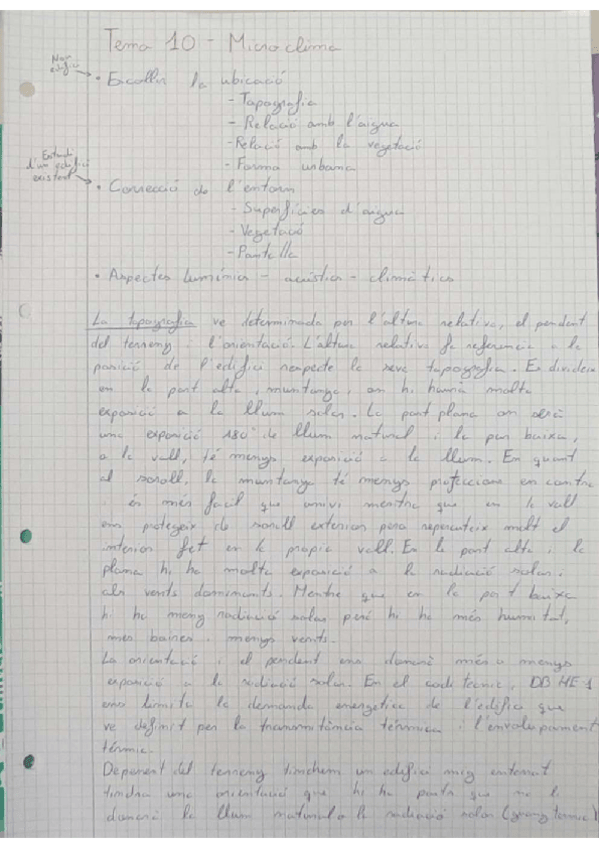 Tema 10 - Microclima
Nou
edifici
• Escollir la ubicació
- Topografia
- Relació amb l'aigua
- Relació amb la vegetació
- Forma urbana
Estudi
d'un edifici
existent
• Correcció de l'entorn
- Superfícies d'aigua
- Vegetació
- Pantalla
• Aspectes lumínics - acústics - climàtics
La topografia ve determinada per l'altura relativa, el pendent
del terreny i l'orientació. L'altura relativa fa referencia a la
posició de l'edifici respecte la seva topografia. Es divideix
en la part alta, muntanya, on hi haurà molta
exposició a la llum solar. La part plana on
una exposició 180° de llum natural i la part baixa,
a la vall, té menys exposició a la llum. En quant
al soroll, la muntanya té menys proteccions en contra
i és més facil que arrivi mentre que en la vall
ens protegeix de soroll exterior pero repercuteix molt el
interior fet en la propia vall. En la part alta i la
plana hi ha molta exposició a la radiació solar i
als vents dominants. Mentre que en la part baixa
hi ha meny radiació solar però hi ha més humitat,
més boires i menys vents.
La orientació i el pendent ens donarà més o menys
exposició a la radiació solar. En el codi tecnic, DB HE 1
ens limita la demanda energetica de l'edifici que
ve definit per la transmitància térmica i l'envolupament
térmic.
Depenent del terreny tindrem un edifici mig enterrat
tindra una orientació que hi ha parts que no li
donarà la llum natural o la radiació solar